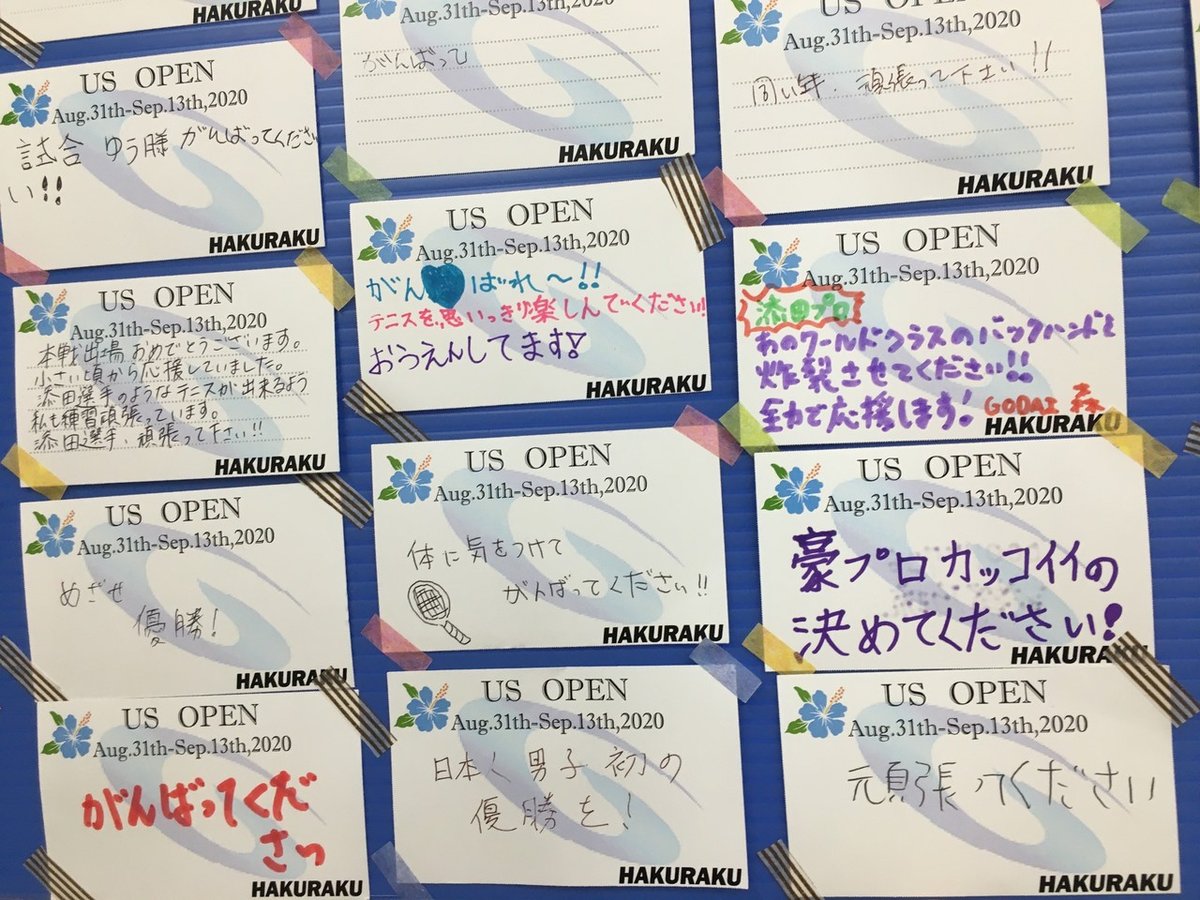 HAKURAKU
US OPEN
Aug.31th-Sep.13th,2020
試合 ゆう勝 がんばってくださ
い!!
HAKURAKU
US OPEN
Aug.31th-Sep.13th,2020
本戦出場おめでとうございます。
小さい頃から応援していました。
添田選手のようなテニスが出来るよう
私も練習頑張っています。
添田選手、頑張って下さい!!
HAKURAKU
US OPEN
Aug.31th-Sep.13th,2020
めざせ
優勝!
HAKURAKU
US OPEN
Aug.31th-Sep.13th,2020
がんばってくだ
さっ
HAKURAKU
Aug.31th-Sep.13th,2020
がんばって
HAKURAKU
US OPEN
Aug.31th-Sep.13th,2020
がん ばれ〜!!
テニスを思いっきり楽しんでください!!
おうえんしてます!
HAKURAKU
US OPEN
Aug.31th-Sep.13th,2020
体に気をつけて
がんばってください!!
HAKURAKU
US OPEN
Aug.31th-Sep.13th,2020
日本人男子初の
優勝を!
HAKURAKU
US OPEN
Aug.31th-Sep.13th,2020
同い年、頑張って下さい!!
HAKURAKU
US OPEN
Aug.31th-Sep.13th,2020
添田プロ
あのワールドクラスのバックハンドを
炸裂させてください!!
全力で応援します! GODAI 森
HAKURAKU
US OPEN
Aug.31th-Sep.13th,2020
豪プロカッコイイの
決めてください!
HAKURAKU
US OPEN
Aug.31th-Sep.13th,2020
頑張ってください
HAKURAKU